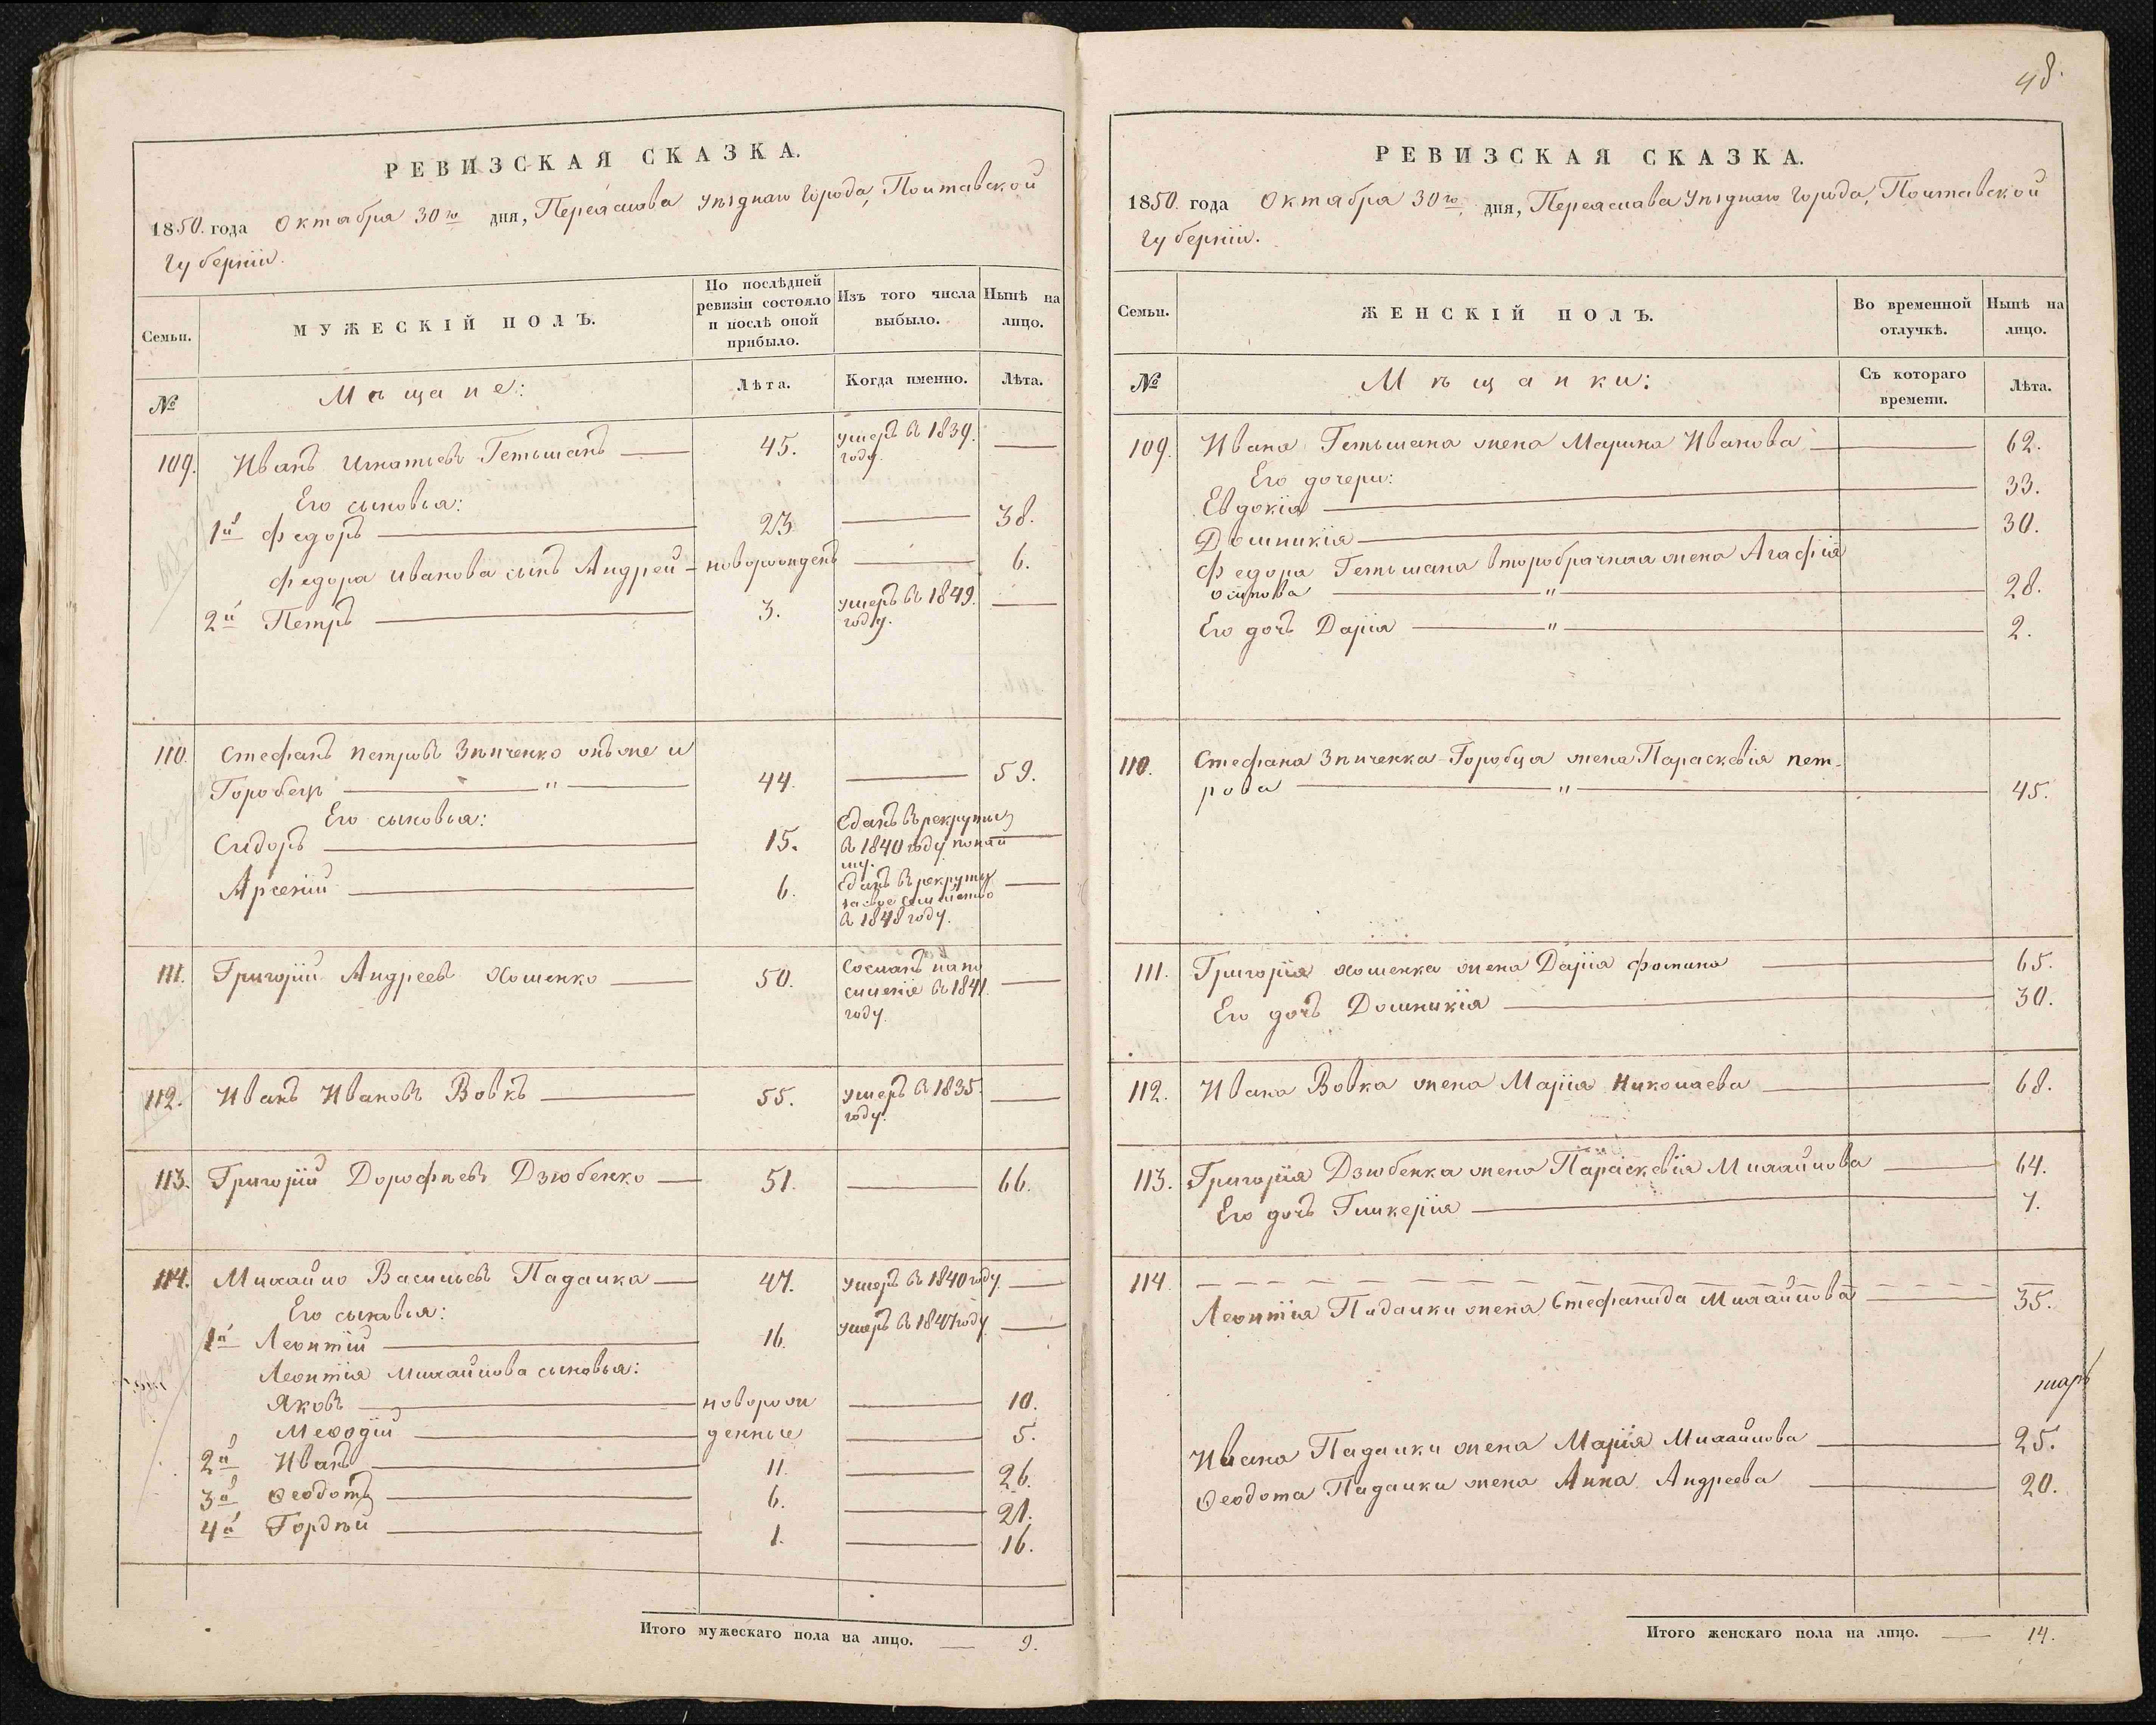 РЕВИЗСКАЯ СКАЗКА.
1850. года Октября 30го дня, Переяслова Уѣзднаго Города, Полтавской
Губерніи.
Семьи.
МУЖЕСКІЙ ПОЛЪ.
По послѣдней
ревизіи состояло
и послѣ оной
прибыло.
Изъ того числа
выбыло.
Нынѣ на
лицо.
№
Мѣщане:
Лѣта.
Когда именно.
Лѣта.
109. Иванъ Игнатьевъ Гетьманъ 45. умеръ въ 1839.
году.
Его сыновья:
1й Федоръ 23 38.
Федора Иванова сынъ Андрей новорожденъ 6.
2й Петръ 3. умеръ въ 1849.
году.
110. Стефанъ Петровъ Зѣнченко онъ же и
Горобецъ " 44. 59.
Его сыновья:
Сидоръ 15. Сданъ въ рекруты
въ 1840 году по най
му.
Арсеній 6. Сданъ въ рекруты
за свое семейство
въ 1848 году.
111. Григорій Андреевъ Хоменко 50. Сосланъ на по
селеніе въ 1841.
году.
112. Иванъ Ивановъ Вовкъ 55. умеръ въ 1835.
году.
113. Григорій Дорофѣевъ Дзюбенко 51. 66.
114. Михайло Васильевъ Падалка 47. умеръ въ 1840 году.
Его сыновья:
1й Леонтій 16. умеръ въ 1847 году
Леонтія Михайлова сыновья:
Яковъ новорож 10.
Меѳодій денные 5.
2й Иванъ 11. 26.
3й Ѳеодотъ 6. 21.
4й Гордѣй 1. 16.
Итого мужескаго пола на лицо. 9.
48.
РЕВИЗСКАЯ СКАЗКА.
1850. года Октября 30го дня, Переяслава Уѣзднаго Города, Полтавской
Губерніи.
Семьи.
ЖЕНСКІЙ ПОЛЪ.
Во временной
отлучкѣ.
Нынѣ на
лицо.
№
Мѣщанки:
Съ котораго
времени.
Лѣта.
109. Ивана Гетьмана жена Марина Иванова 62.
Его дочери:
Евдокія 33.
Домникія 30.
Федора Гетьмана второбрачная жена Агафія
Осипова " 28.
Его дочь Дарія " 2.
110. Стефана Зѣнченка-Горобца жена Параскевія Пет-
рова " 45.
111. Григорія Хоменка жена Дарія Фомина 65.
Его дочь Домникія 30.
112. Ивана Вовка жена Марія Николаева 68.
113. Григорія Дзюбенка жена Параскевія Михайлова 64.
Его дочь Гликерія 7.
114.
Леонтія Падалки жена Стефанида Михайлова 35.
Ивана Падалки жена Марія Михайлова 25.
Ѳеодота Падалки жена Анна Андреева 20.
Итого женскаго пола на лицо. 14.